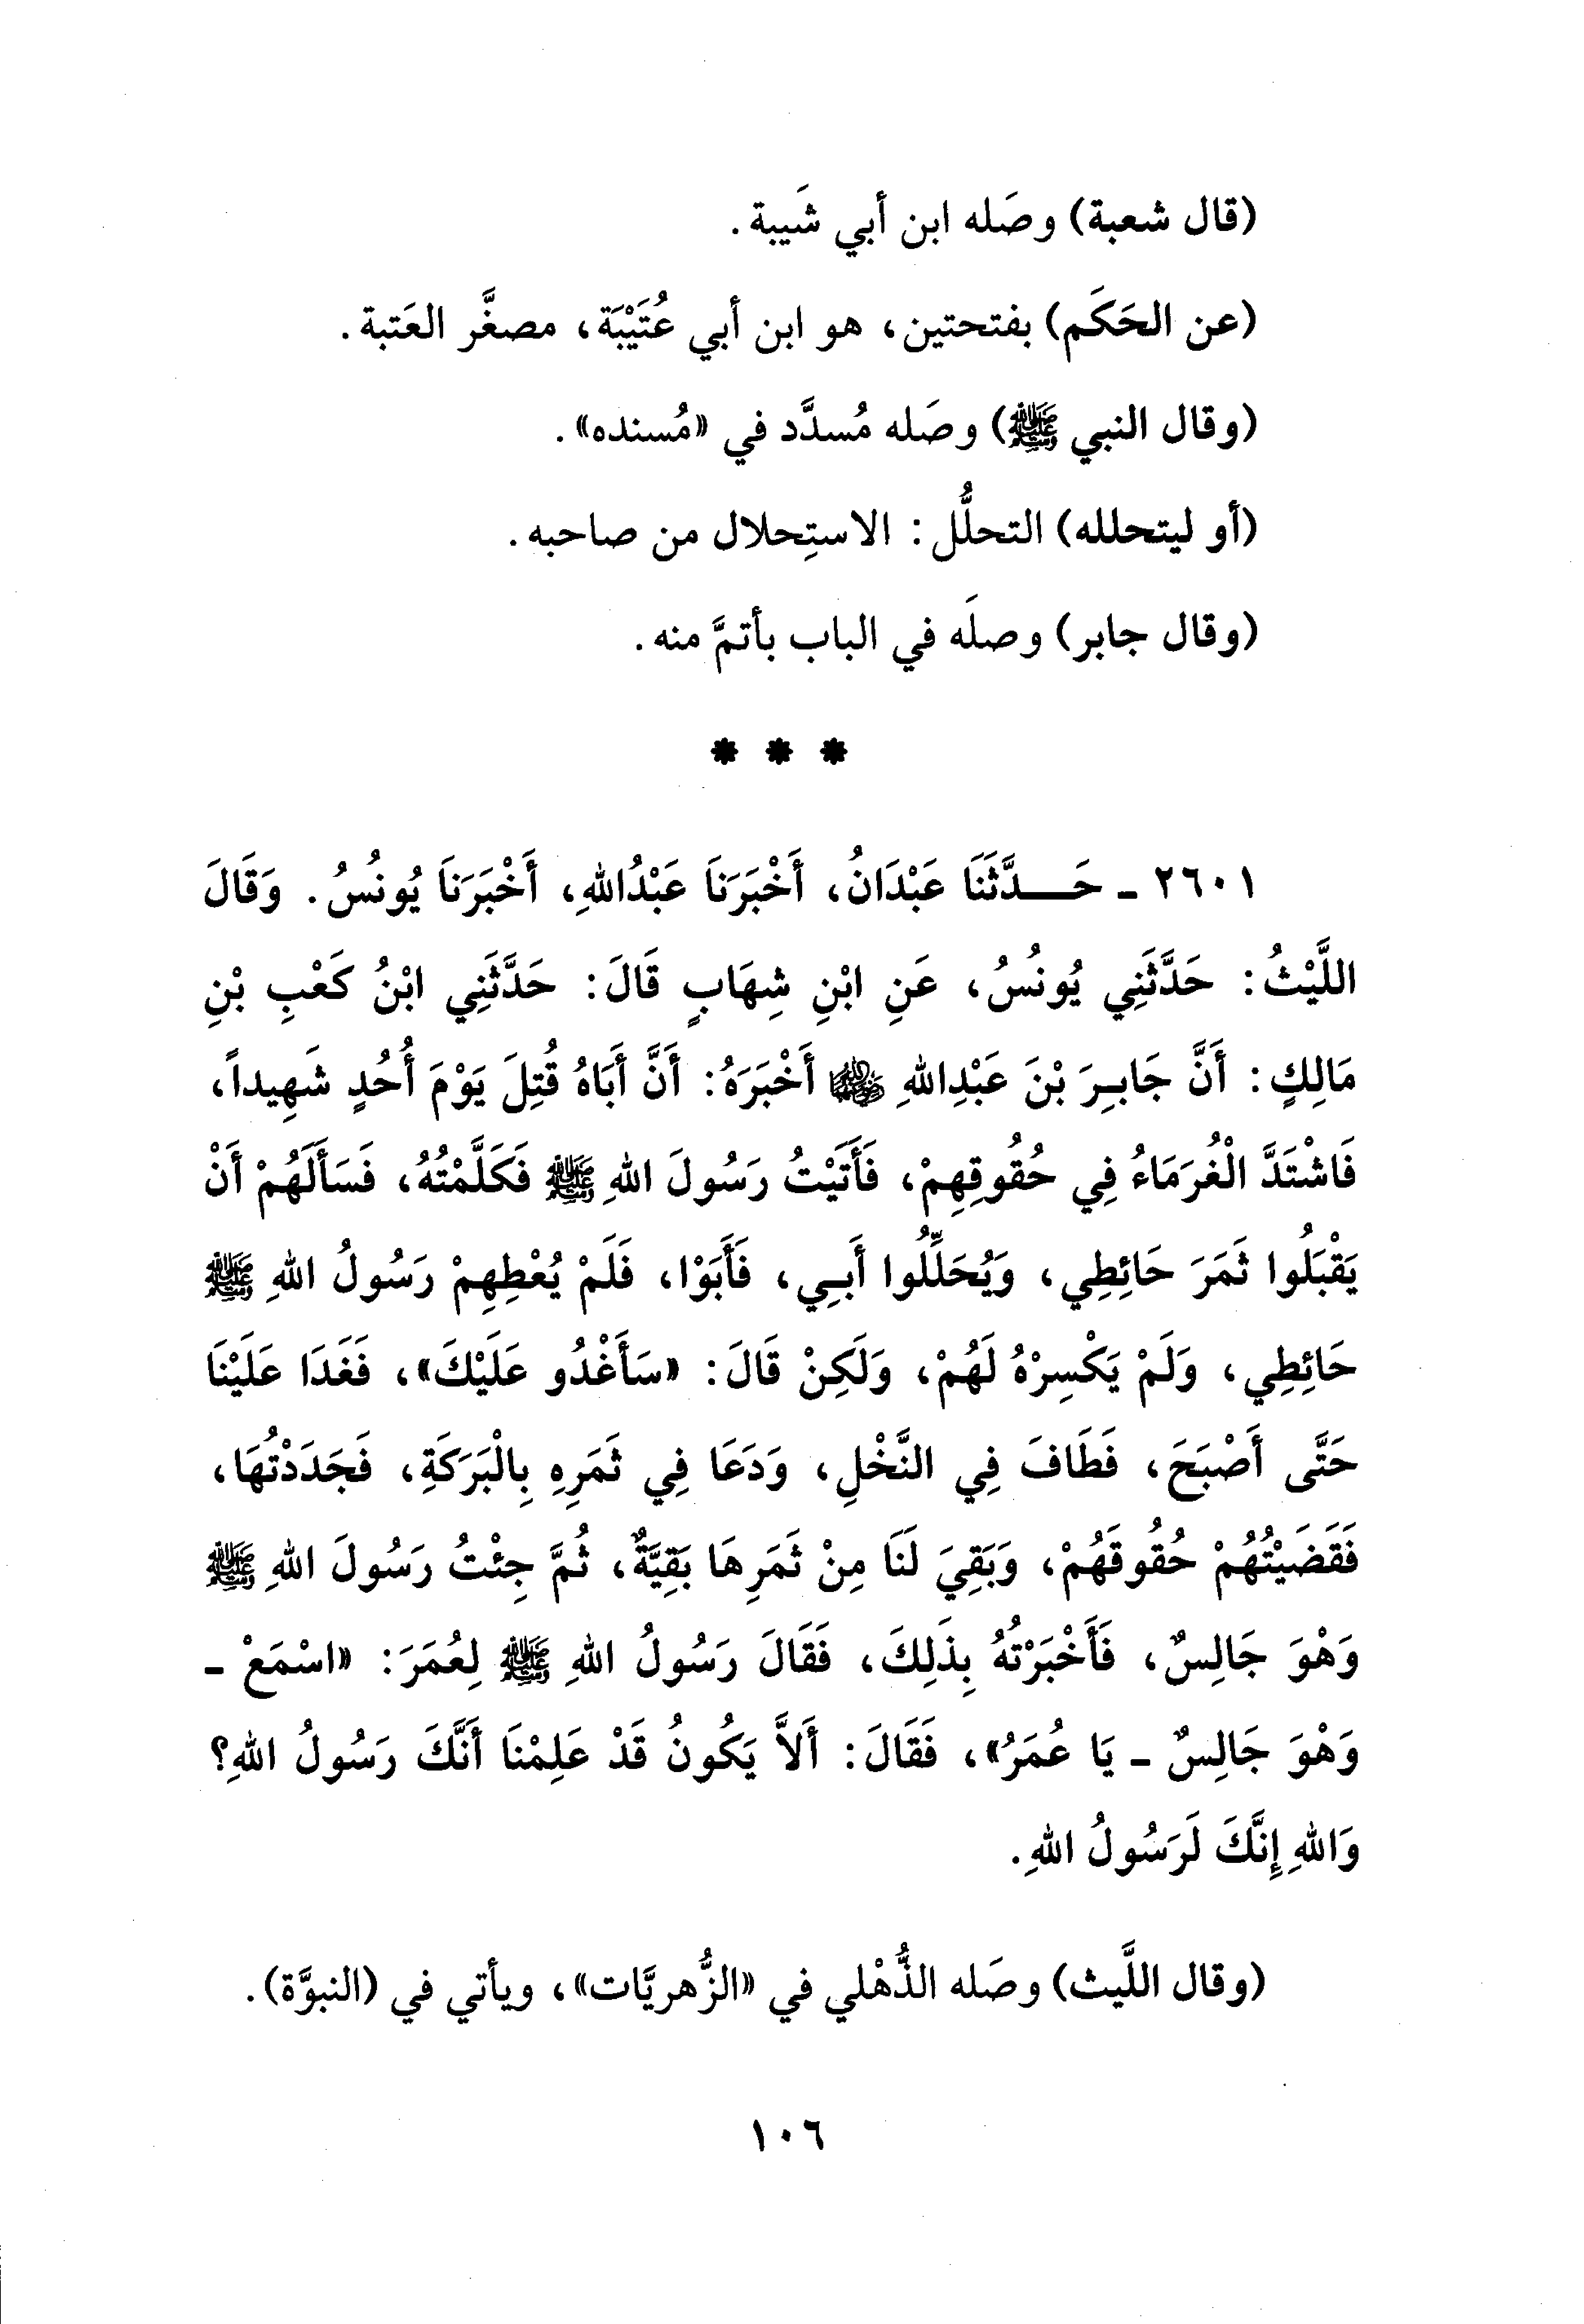 (قال شعبة) وصَله ابن أبي شَيبة.
(عن الحَكَم) بفتحتين، هو ابن أبي عُتَيْبَة، مصغَّر العَتبة.
(وقال النبي ﷺ) وصَله مُسدَّد في «مُسنده».
(أو ليتحلله) التحلُّل: الاستِحلال من صاحبه.
(وقال جابر) وصلَه في الباب بأتمَّ منه.
* * *
٢٦٠١ - حَـــدَّثَنَا عَبْدَانُ، أَخْبَرَنَا عَبْدُاللهِ، أَخْبَرَنَا يُونُسُ. وَقَالَ
اللَّيْثُ: حَدَّثَنِي يُونُسُ، عَنِ ابْنِ شِهَابٍ قَالَ: حَدَّثَنِي ابْنُ كَعْبِ بْنِ
مَالِكٍ: أَنَّ جَابِرَ بْنَ عَبْدِاللهِ رضي الله عنهما أَخْبَرَهُ: أَنَّ أَبَاهُ قُتِلَ يَوْمَ أُحُدٍ شَهِيداً،
فَاشْتَدَّ الْغُرَمَاءُ فِي حُقُوقِهِمْ، فَأَتَيْتُ رَسُولَ اللهِ ﷺ فَكَلَّمْتُهُ، فَسَأَلَهُمْ أَنْ
يَقْبَلُوا ثَمَرَ حَائِطِي، وَيُحَلِّلُوا أَبِي، فَأَبَوْا، فَلَمْ يُعْطِهِمْ رَسُولُ اللهِ ﷺ
حَائِطِي، وَلَمْ يَكْسِرْهُ لَهُمْ، وَلَكِنْ قَالَ: «سَأَغْدُو عَلَيْكَ»، فَغَدَا عَلَيْنَا
حَتَّى أَصْبَحَ، فَطَافَ فِي النَّخْلِ، وَدَعَا فِي ثَمَرِهِ بِالْبَرَكَةِ، فَجَدَدْتُهَا،
فَقَضَيْتُهُمْ حُقُوقَهُمْ، وَبَقِيَ لَنَا مِنْ ثَمَرِهَا بَقِيَّةٌ، ثُمَّ جِئْتُ رَسُولَ اللهِ ﷺ
وَهْوَ جَالِسٌ، فَأَخْبَرْتُهُ بِذَلِكَ، فَقَالَ رَسُولُ اللهِ ﷺ لِعُمَرَ: «اسْمَعْ -
وَهْوَ جَالِسٌ - يَا عُمَرُ»، فَقَالَ: أَلاَّ يَكُونُ قَدْ عَلِمْنَا أَنَّكَ رَسُولُ اللهِ؟
وَاللهِ إِنَّكَ لَرَسُولُ اللهِ.
(وقال اللَّيث) وصَله الذُّهْلي في «الزُّهريَّات»، ويأتي في (النبوَّة).
١٠٦